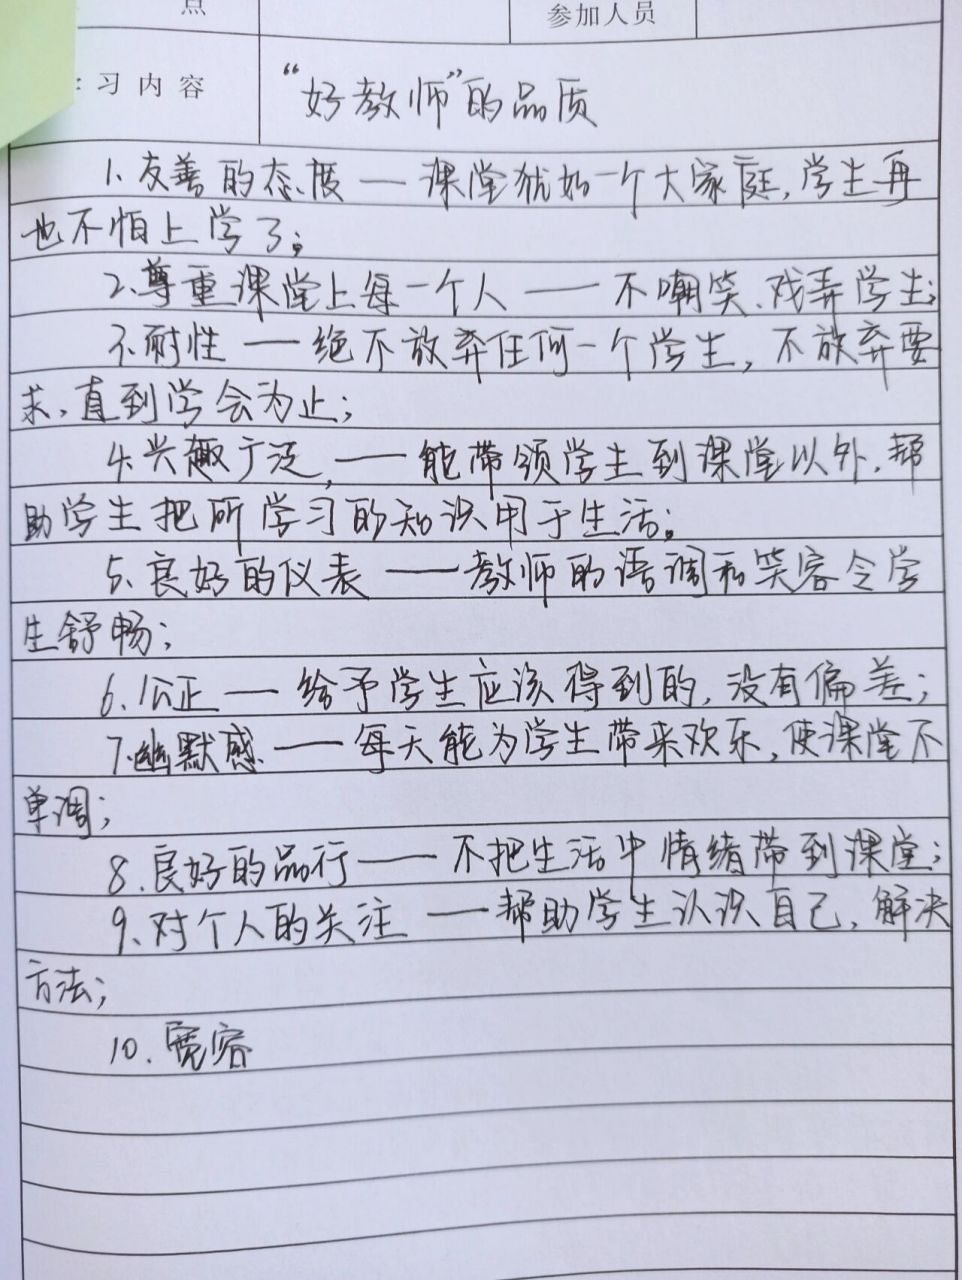 点
参加人员
习内容
“好教师”的品质
1、友善的态度 — 课堂犹如一个大家庭,学生再
也不怕上学了;
2、尊重课堂上每一个人 — 不嘲笑、戏弄学生;
3、耐性 — 绝不放弃任何一个学生, 不放弃要
求,直到学会为止;
4、兴趣广泛, — 能带领学生到课堂以外,帮
助学生把所学习的知识用于生活;
5、良好的仪表 — 教师的语调和笑容令学
生舒畅;
6、公正 — 给予学生应该得到的,没有偏差;
7、幽默感 — 每天能为学生带来欢乐,使课堂不
单调;
8、良好的品行 — 不把生活中情绪带到课堂;
9、对个人的关注 — 帮助学生认识自己,解决
方法;
10、宽容